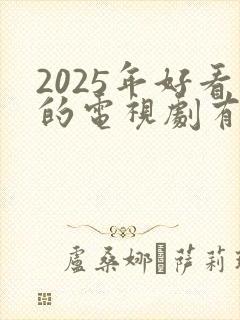 2025年好看
的電視劇有
盧桑娜·薩莉